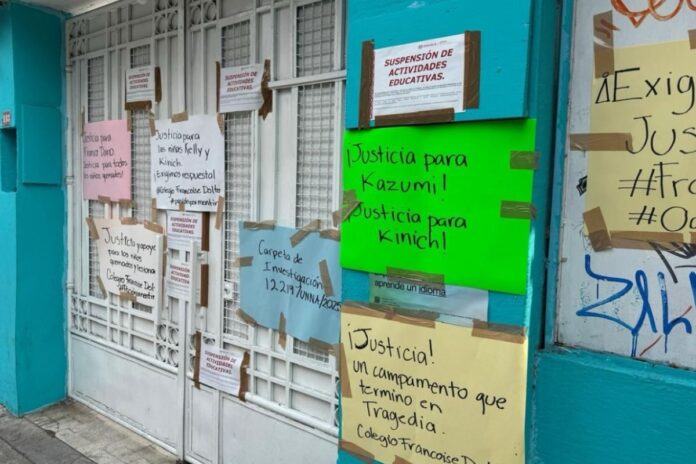 SUSPENSIÓN DE
ACTIVIDADES
EDUCATIVAS.
SUSPENSIÓN DE
ACTIVIDADES EDUCATIVAS.
SUSPENSIÓN DE
ACTIVIDADES
EDUCATIVAS.
Justicia para
Justicia para todos
los niños quemados!
Justicia para
los niños Kelly y
Kinich.
¡Exigimos respuesta!
@Colegio Francoise Dolto
¡Justicia para
Kazumi!
Justicia para
Kinich!
¡Exig
Jus
#Fra
#O
Justicia y apoyo
para los niños
quemados y lesiona
Colegio Francoise Dol
SUSPENSIÓN DE
ACTIVIDADES
EDUCATIVAS.
SUSPENSIÓN DE
ACTIVIDADES
EDUCATIVAS.
Carpeta de
Investigación
12219/UNNA/2025
aprende un idioma
SUSPENSIÓN DE
ACTIVIDADES
EDUCATIVAS.
¡Justicia!
un campamento que
termino en
Tragedia.
Colegio Francoise D